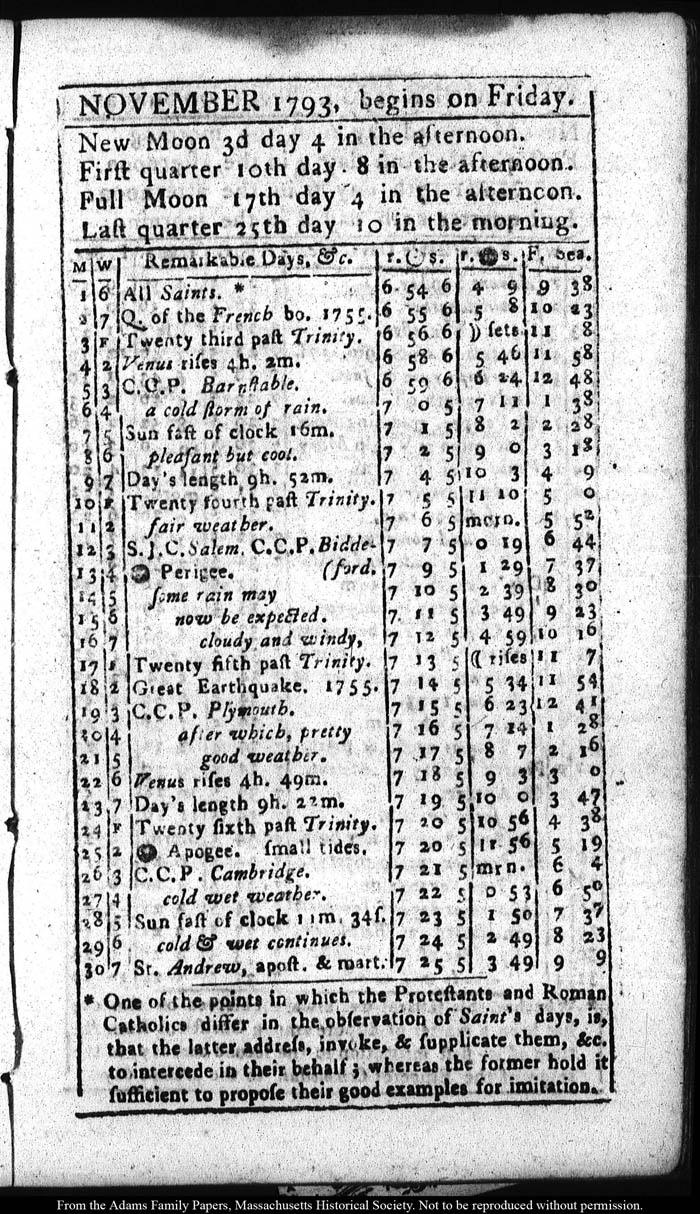 NOVEMBER 1793, begins on Friday.
New Moon 3d day 4 in the afternoon.
Firſt quarter 10th day. 8 in the afternoon.
Full Moon 17th day 4 in the afternoon.
Laſt quarter 25th day 10 in the morning.
M W Remarkable Days, &c. r. ☉ s. r. s. F. Sea.
1 6 All Saints. * 6 54 6 4 9 9 38
2 7 Q. of the French bo. 1755. 6 55 6 5 8 10 23
3 F Twenty third paſt Trinity. 6 56 6 ☽ ſets 11 8
4 2 Venus riſes 4h. 2m. 6 58 6 5 46 11 58
5 3 C.C.P. Barnſtable. 6 59 6 6 24 12 48
6 4 a cold ſtorm of rain. 7 0 5 7 11 1 38
7 5 Sun faſt of clock 16m. 7 1 5 8 2 2 28
8 6 pleaſant but cool. 7 2 5 9 0 3 18
9 7 Day's length 9h. 52m. 7 4 5 10 3 4 9
10 F Twenty fourth paſt Trinity. 7 5 5 11 10 5 0
11 2 fair weather. 7 6 5 morn. 5 52
12 3 S.J.C. Salem. C.C.P. Bidde- 7 7 5 0 19 6 44
13 4 Perigee. (ford. 7 9 5 1 29 7 37
14 5 ſome rain may 7 10 5 2 39 8 30
15 6 now be expected. 7 11 5 3 49 9 23
16 7 cloudy and windy, 7 12 5 4 59 10 16
17 F Twenty fifth paſt Trinity. 7 13 5 ☾ riſes 11 7
18 2 Great Earthquake. 1755. 7 14 5 5 34 11 54
19 3 C.C.P. Plymouth. 7 15 5 6 23 12 41
20 4 after which, pretty 7 16 5 7 14 1 28
21 5 good weather. 7 17 5 8 7 2 16
22 6 Venus riſes 4h. 49m. 7 18 5 9 3 3 0
23 7 Day's length 9h. 22m. 7 19 5 10 0 3 47
24 F Twenty ſixth paſt Trinity. 7 20 5 10 56 4 38
25 2 Apogee. ſmall tides. 7 20 5 11 56 5 19
26 3 C.C.P. Cambridge. 7 21 5 mrn. 6 4
27 4 cold wet weather. 7 22 5 0 53 6 50
28 5 Sun faſt of clock 11m. 34ſ. 7 23 5 1 50 7 37
29 6 cold & wet continues. 7 24 5 2 49 8 23
30 7 St. Andrew, apoſt. & mart. 7 25 5 3 49 9 9
* One of the points in which the Proteſtants and Roman
Catholics differ in the obſervation of Saint's days, is,
that the latter addreſs, invoke, & ſupplicate them, &c.
to intercede in their behalf; whereas the former hold it
ſufficient to propoſe their good examples for imitation.
From the Adams Family Papers, Massachusetts Historical Society. Not to be reproduced without permission.